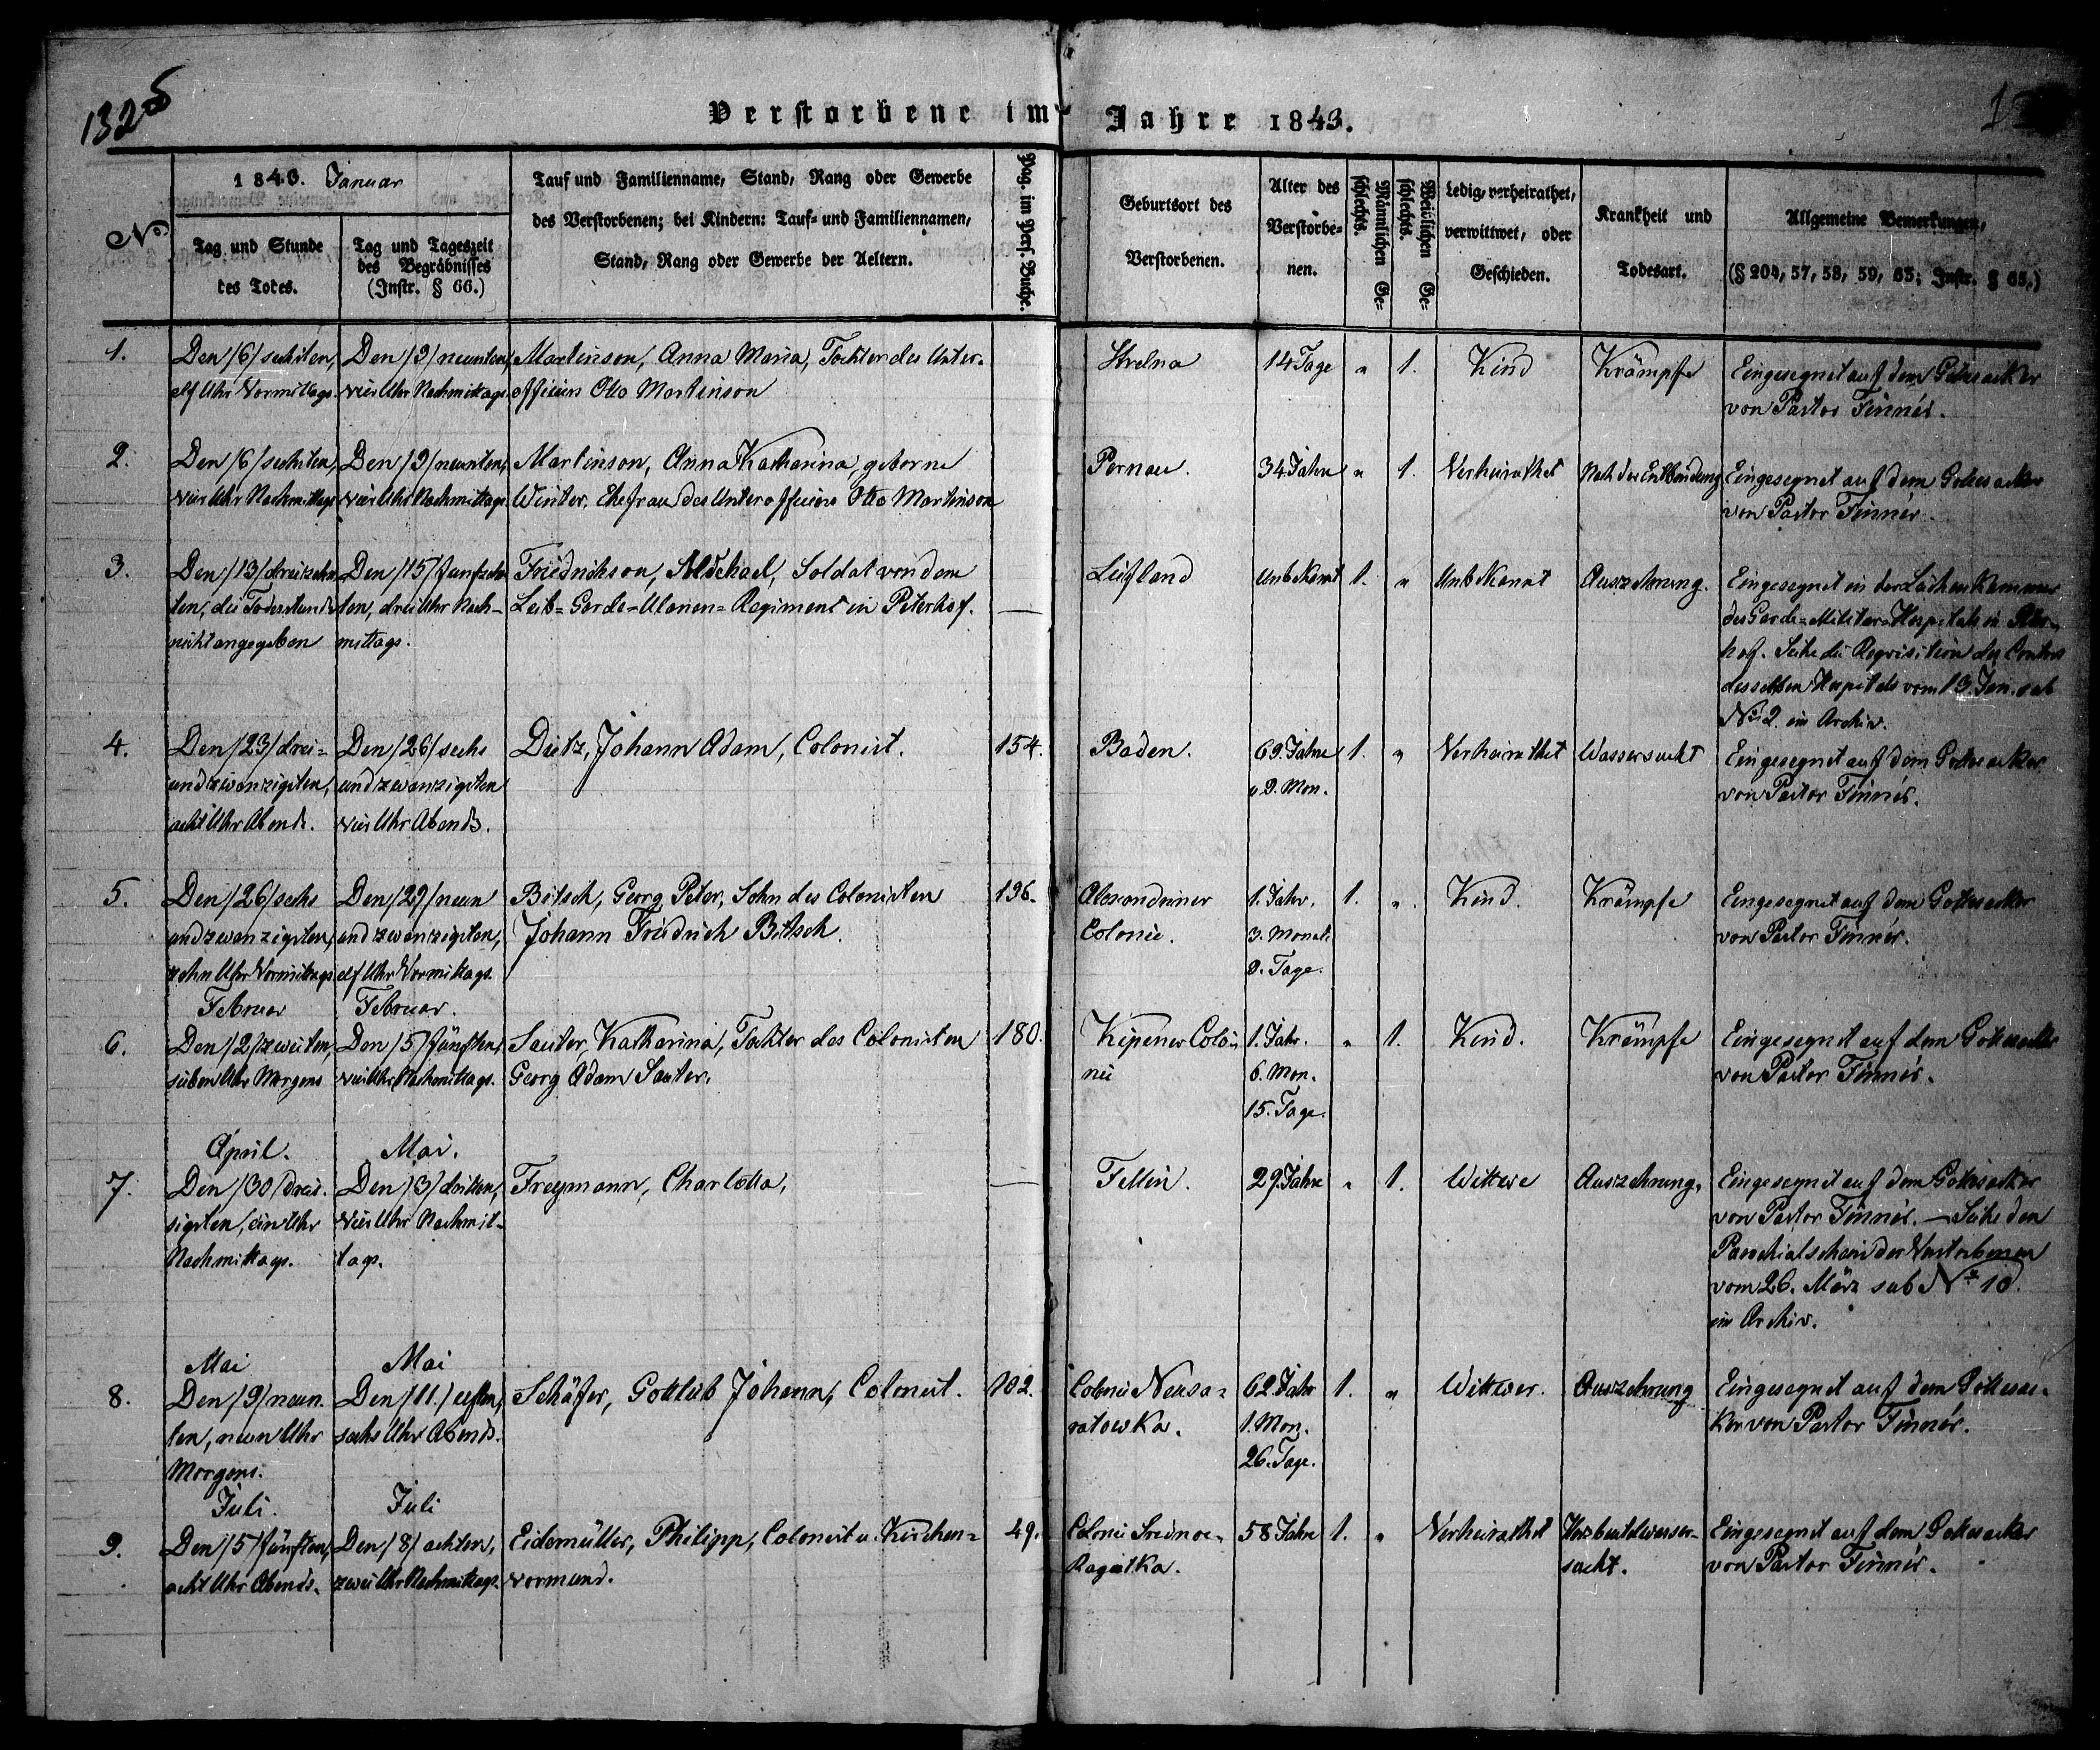 1325
Verstorbene im Jahre 1843.
No
1843. Januar
Tag und Stunde
des Todes.
Tag und Tageszeit
des Begräbnisses
(Instr. § 66.)
Tauf und Familienname, Stand, Rang oder Gewerbe
des Verstorbenen; bei Kindern: Tauf- und Familiennamen,
Stand, Rang oder Gewerbe der Aeltern.
Pag. im Pers. Buche.
Geburtsort des
Verstorbenen.
Alter des
Verstorbe-
nen.
Männlichen Ge-
schlechts.
Weiblichen Ge-
schlechts.
Ledig, verheirathet,
verwittwet, oder
Geschieden.
Krankheit und
Todesart.
Allgemeine Bemerkungen,
(§ 204, 57, 58, 59, 63; Instr. § 65.)
1.
Den /6/ sechsten,
elf Uhr Vormittags.
Den /9/ neunten,
vier Uhr Nachmittags.
Martinson, Anna Maria, Tochter des Unter-
officiers Otto Martinson
Strelna
14 Tage
" 1.
Kind
Krämpfe
Eingesegnet auf dem Gottesacker
von Pastor Finnér.
2.
Den /6/ sechsten,
vier Uhr Nachmittags
Den /9/ neunten,
vier Uhr Nachmittags.
Martinson, Anna Katharina, geborne
Winter, Ehefrau des Unterofficiers Otto Martinson
Pernau.
34 Jahre
" 1.
Verheirathet
Nach der Entbindung
Eingesegnet auf dem Gottesacker
von Pastor Finnér.
3.
Den /13/ dreizehn
ten, die Todesstunde
nicht angegeben
Den /15/ funfzehn
ten, drei Uhr Nach-
mittags.
Friedrichson, Michael, Soldat von dem
Leib-Garde-Ulanen-Regiment in Peterhof.
—
Liefland
Unbekannt
1. "
Unbekannt
Auszehrung.
Eingesegnet in der Leichenkammer
des Garde-Militär-Hospitals in Peter-
hof. Siehe die Requisition des
desselben Hospitals vom 13. Jan. sub
No 2 im Archiv.
4.
Den /23/ drei-
und zwanzigsten,
acht Uhr Abends.
Den /26/ sechs
und zwanzigsten
vier Uhr Abends.
Dietz, Johann Adam, Colonist.
154.
Baden.
69. Jahre
u 9. Mon.
1. "
Verheirathet
Wassersucht
Eingesegnet auf dem Gottesacker
von Pastor Finnér.
5.
Den /26/ sechs
und zwanzigsten,
zehn Uhr Vormittags
Den /29/ neun
und zwanzigsten,
elf Uhr Vormittags.
Bitsch, Georg Peter, Sohn des Colonisten
Johann Friedrich Bitsch.
196.
Alexandriner
Colonie.
1. Jahr,
3. Monate
9. Tage.
1. "
Kind.
Krämpfe
Eingesegnet auf dem Gottesacker
von Pastor Finnér.
Februar
Februar.
6.
Den /2/ zweiten,
sieben Uhr Morgens
Den /5/ fünften,
vier Uhr Nachmittags.
Sauter, Katharina, Tochter des Colonisten
Georg Adam Sauter.
180.
Kipener Colo-
nie
1. Jahr.
6. Mon.
15. Tage.
" 1.
Kind.
Krämpfe
Eingesegnet auf dem Gottesacker
von Pastor Finnér.
April.
Mai.
7.
Den /30/ dreis-
sigsten, ein Uhr
Nachmittags.
Den /3/ dritten,
vier Uhr Nachmit-
tags.
Freymann, Charlotta,
—
Fellin.
29 Jahre
" 1.
Wittwe
Auszehrung.
Eingesegnet auf dem Gottesacker
von Pastor Finnér. — Siehe den
Parochialschein der Verstorbenen
vom 26. März sub No 10.
im Archiv.
Mai
Mai
8.
Den /9/ neun
ten, neun Uhr
Morgens.
Den /11./ eilften,
sechs Uhr Abends.
Schäfer, Gottlieb Johann, Colonist.
102.
Colonie Neusa-
ratowka.
62 Jahr
1. Mon.
26. Tage.
1. "
Wittwer.
Auszehrung
Eingesegnet auf dem Gottesac-
ker von Pastor Finnér.
Juli.
Juli
9.
Den /5/ fünften,
acht Uhr Abends.
Den /8/ achten,
zwei Uhr Nachmittags.
Eidemüller, Philipp, Colonist u. Kirchen-
vormund.
49.
Colonie Srednoe-
Ragatka.
58 Jahre
1. "
Verheirathet
Herzbeutelwasser-
sucht.
Eingesegnet auf dem Gottesacker
von Pastor Finnér.